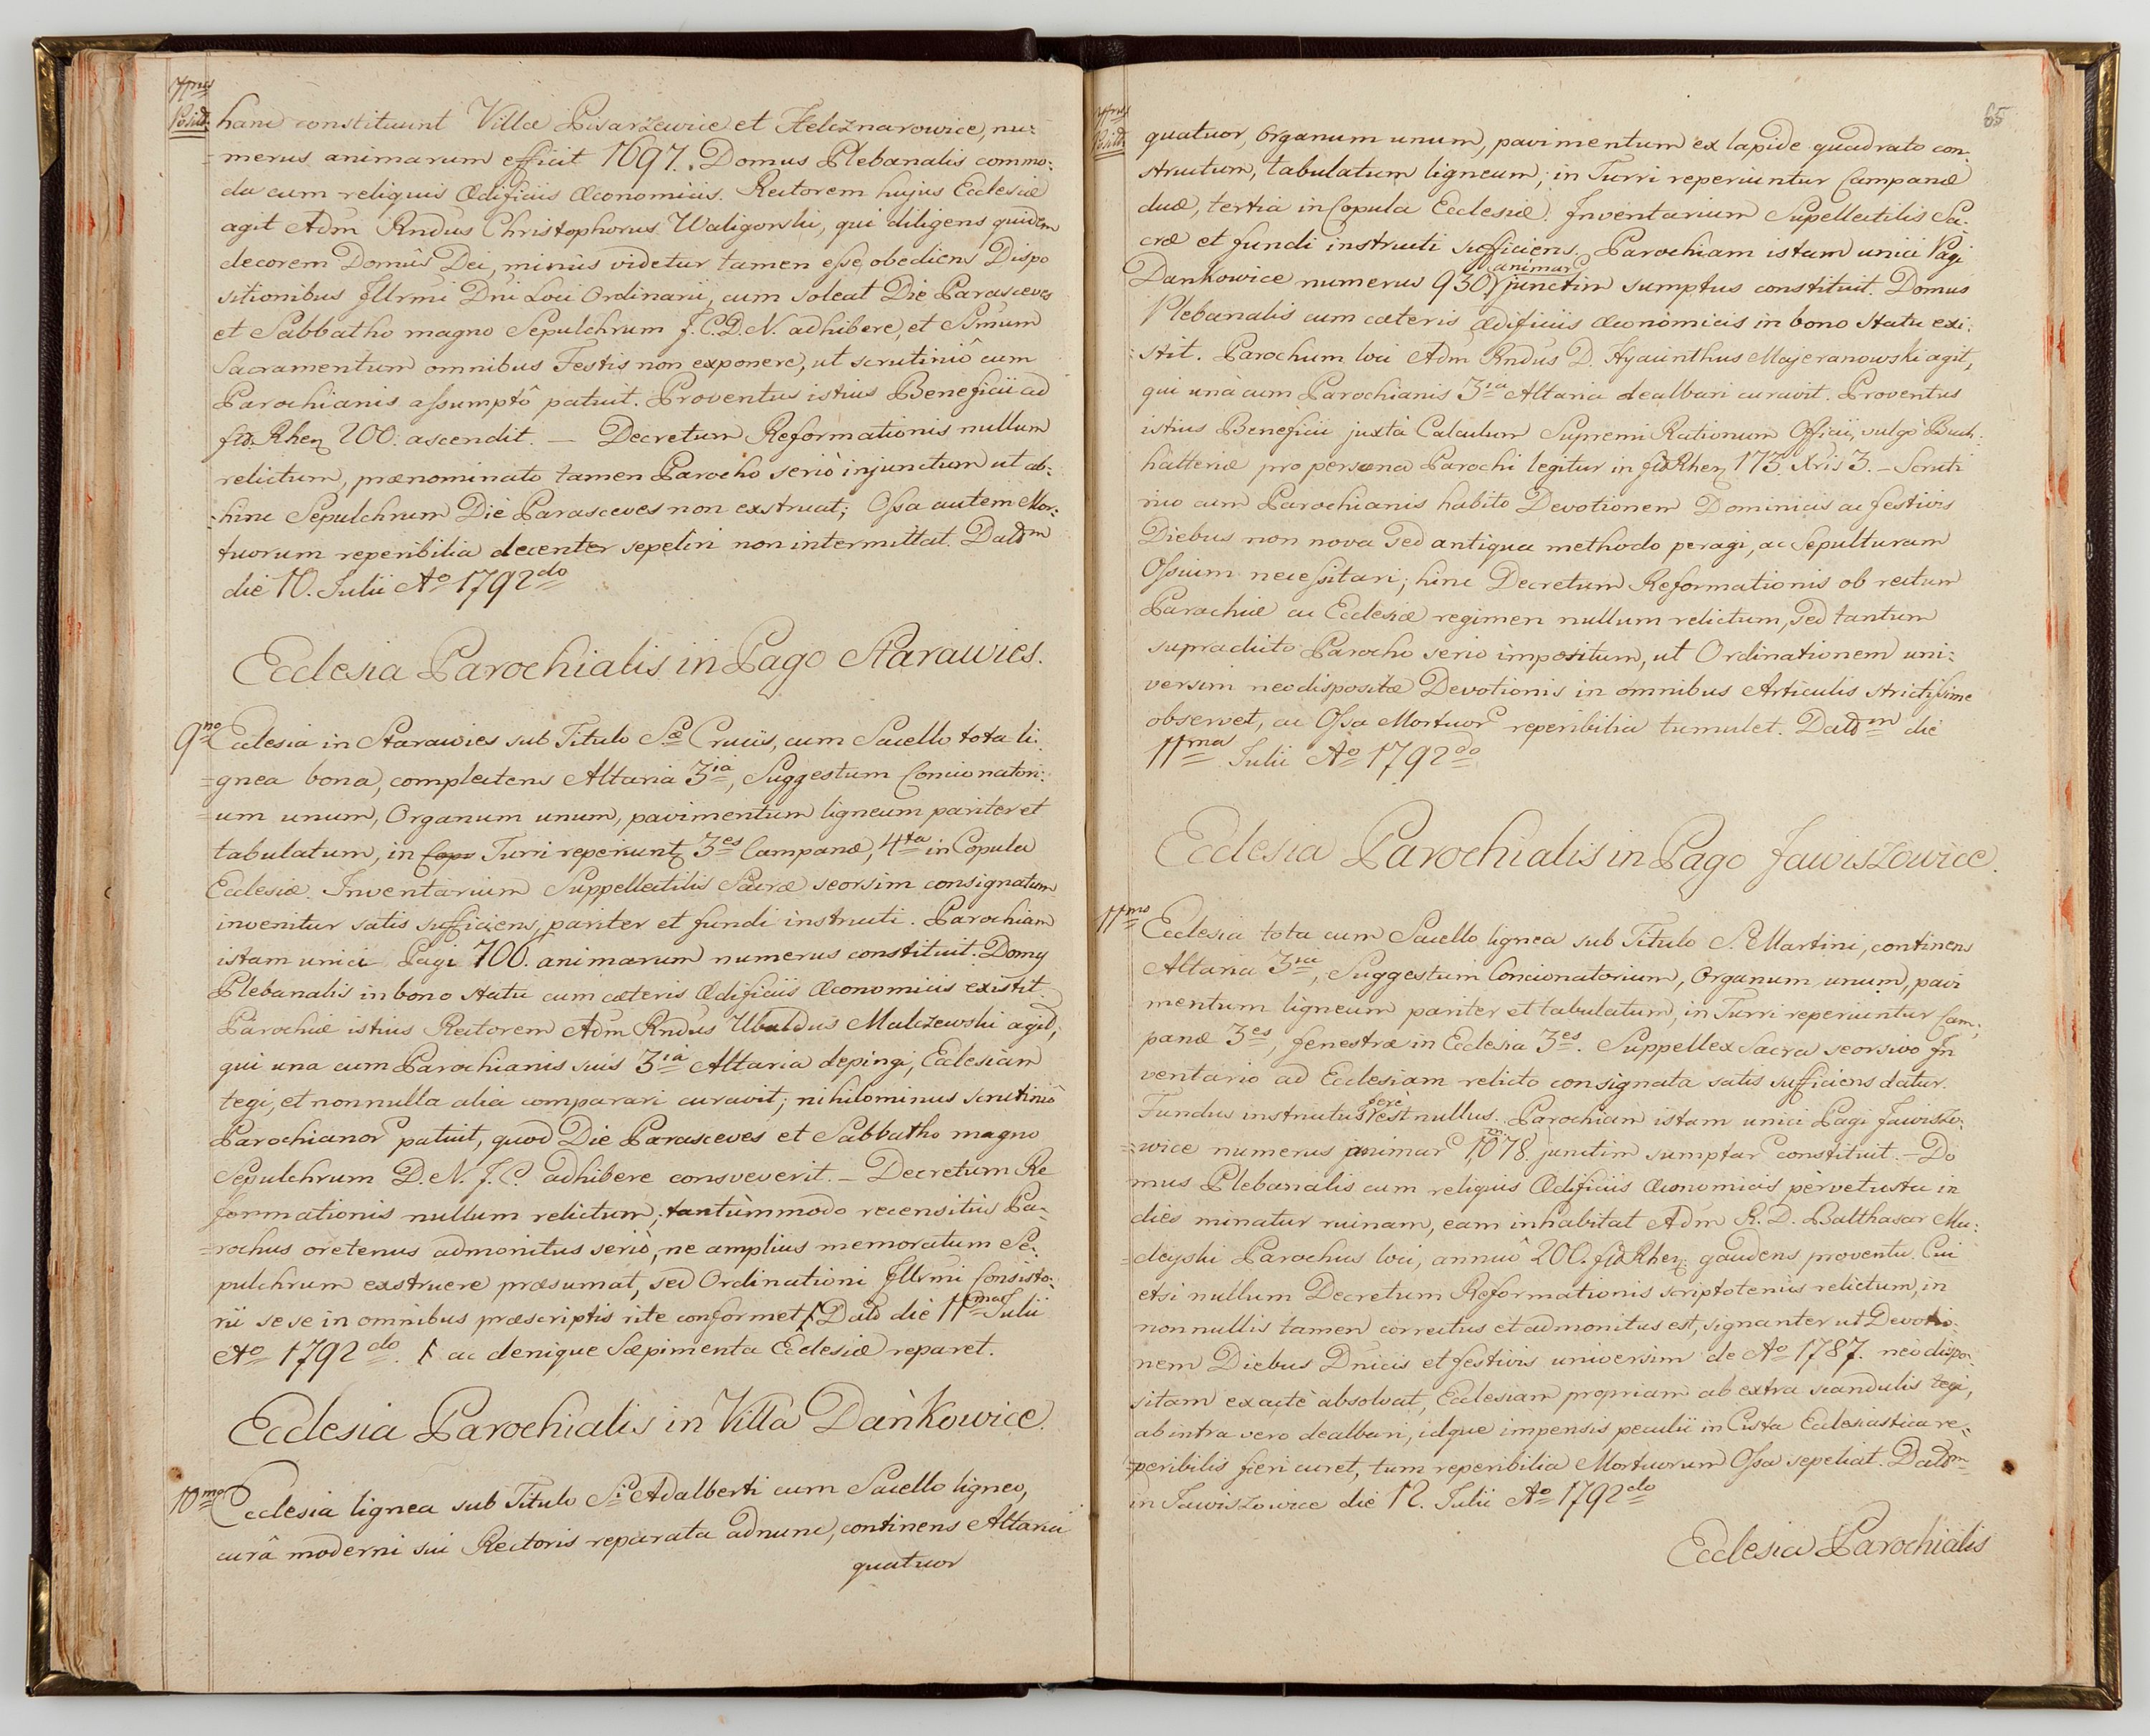 hanc constituunt Villæ Pisarzewice et Heleznarowice, nu=
=merus animarum efficit 1697. Domus Plebanalis commo=
da cum reliquis Ædificiis Œconomicis. Rectorem hujus Ecclesiæ
agit Adm Rndus Christophorus Waligorski, qui diligens quidem
decorem Domûs Dei, minùs videtur tamen esse obediens Dispo
sitionibus Jllrmi Dni Loci Ordinarii, cum soleat Die Parasceves
et Sabbatho magno Sepulchrum J.C.D.N. adhibere, et Smum
Sacramentum omnibus Festis non exponere, ut scrutiniô cum
Parochianis assumptô patuit. Proventus istius Beneficii ad
Rhen 200. ascendit. — Decretum Reformationis nullum
relictum, prænominato tamen Parocho seriò injunctum ut ab=
=hinc Sepulchrum Die Parasceves non exstruat; Ossa autem Mor=
tuorum reperibilia decenter sepeliri non intermittat. Datum
die 10. Julii Ao 1792do
Ecclesia Parochialis in Pago Starawies.
9no Ecclesia in Starawies sub Titulo Sæ Crucis, cum Sacello tota li=
=gnea bona, complectens Altaria 3ia, Suggestum Concionatori=
=um unum, Organum unum, pavimentum ligneum pariter et
tabulatum, in Cops Turri reperiunt 3es Campanæ, 4ta in Copula
Ecclesiæ. Inventarium Suppellectilis Sacræ seorsim consignatum
invenitur satis sufficiens, pariter et fundi instructi. Parochiam
istam unici Pagi 700. animarum numerus constituit. Domy
Plebanalis in bono statu cum cæteris Ædificiis Œconomicis existit.
Parochiæ istius Rectorem Adm Rndus Ubaldus Malczewski agit,
qui una cum Parochianis suis 3ia Altaria depingi, Ecclesiam
tegi, et nonnulla alia comparari curavit; nihilominus scrutiniô
Parochianor patuit, quod Die Parasceves et Sabbatho magno
Sepulchrum D.N.J.C. adhibere consveverit. — Decretum Re
formationis nullum relictum; tantùmmodo recensitus Pa=
=rochus oretenus admonitus seriò, ne amplius memoratum Se=
pulchrum exstruere præsumat, sed Ordinationi Jllrmi Consisto=
rii sese in omnibus præscriptis rite conformet Dat die 11ma Julii
Ao 1792do. ac denique Sæpimenta Ecclesiæ reparet.
Ecclesia Parochialis in Villa Dànkowice.
10mo Ecclesia lignea sub Titulo Si Adalberti cum Sacello ligneo,
curâ moderni sui Rectoris reparata adnunc, continens Altaria
quatuor
65
quatuor, Organum unum, pavimentum ex lapide quadrato con=
structum, tabulatum ligneum; in Turri reperiuntur Campanæ
duæ, tertia in Copula Ecclesiæ. Inventarium Supellectilis Sa=
cræ et fundi instructi sufficiens. Parochiam istam unici Pagi
animar
Dankowice numerus 930 junctim sumptus constituit. Domus
Plebanalis cum cæteris Ædificiis œconomicis in bono statu exi=
=stit. Parochum loci Adm Rndus D. Hyacinthus Majeranowski agit,
qui unà cum Parochianis 3ia Altaria dealbari curavit. Proventus
istius Beneficii juxtà Calculum Supremi Rationum Officii, vulgò Buch=
hàlteriæ pro persona Parochi legitur in Rhen 173 Xris 3. — Scruti
nio cum Parochianis habito Devotionem Dominicis ac festivis
Diebus non nova sed antiqua methodo peragi, ac Sepulturam
Ossium necessitari; hinc Decretum Reformationis ob rectum
Parochiæ ac Ecclesiæ regimen nullum relictum, sed tantum
supradicto Parocho serio impositum, ut Ordinationem uni=
versim neodispositæ Devotionis in omnibus Articulis strictissime
observet, ac Ossa Mortuor reperibilia tumulet. Datum die
11ma Julii Ao 1792do
Ecclesia Parochialis in Pago Jawiszowice.
11mo Ecclesia tota cum Sacello lignea sub Titulo S. Martini, continens
Altaria 3ia, Suggestum Concionatorium, Organum unum, pavi
mentum ligneum pariter et tabulatum, in Turri reperiuntur Cam=
panæ 3es, fenestræ in Ecclesia 3es. Suppellex Sacra seorsivo In
ventario ad Ecclesiam relicto consignata satis sufficiens datur.
ferè
Fundus instructus est nullus. Parochiam istam unici Pagi Jawiszo=
=wice numerus animar 1078 junctim sumptar constituit. — Do
mus Plebanalis cum reliquis Ædificiis Œconomicis pervetusta in
dies minatur ruinam, eam inhabitat Adm R.D. Balthasar Mu=
=deyski Parochus loci, annuô 200. Rhen gaudens proventu. Cui
etsi nullum Decretum Reformationis scriptotenùs relictum, in
nonnullis tamen correctus et admonitus est, signanter ut Devotio=
nem Diebus Dnicis et festivis universim de Ao 1787. neodispo=
sitam exactè absolvat, Ecclesiam propriam ab extra scandulis tegi,
ab intra vero dealbari, idque impensis peculii in Cista Ecclesiastica re=
=peribilis fieri curet, tum reperibilia Mortuorum Ossa sepeliat. Datum
in Jawiszowice die 12. Julii Ao 1792do
Ecclesia Parochialis